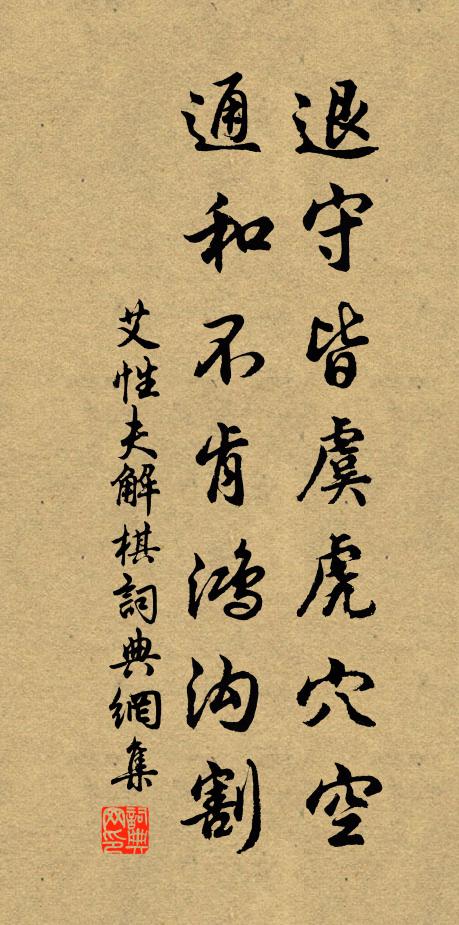 退守皆虞虎穴空
通和不肯鴻沟割
艾性夫解棋詞典網集
詞典網印